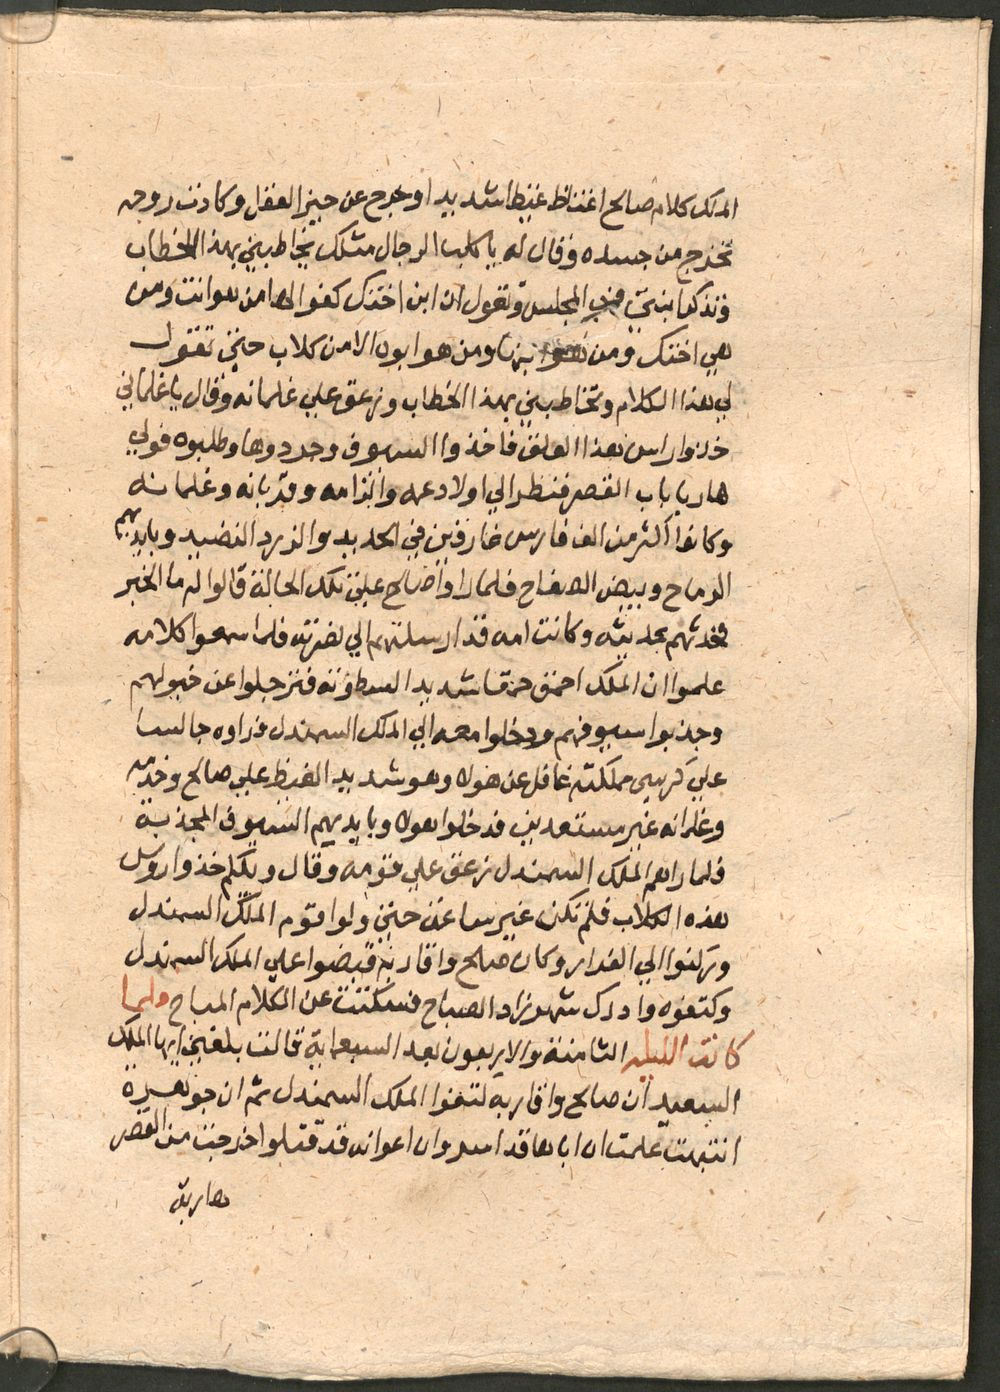 الملك كلام صالح اغتاظ غيظا شديدا وخرج عن حيز العقل وكادت روحه
تخرج من جسده وقال له يا كلب الرجال مثلك يخاطبني بهذا الخطاب
وتذكر ابنتي في المجلس وتقول ان ابن اختك كفوا لها من هو انت ومن
هي اختك ومن هو ابنها ومن هو ابوه الا من كلاب حتي تقول
لي هذا الكلام وتخاطبني بهذا الخطاب وزعق علي غلمانه وقال يا غلماني
خذوا راس هذا العلق فاخذوا السيوف وجردوها وطلبوه فولي
هاربا باب القصر فنظر الي اولاد عمه والزامه وقربانه وغلمانه
وكانوا اكثر من الف فارس غارقين في الحديد والزرد النضيد وبايديهم
الرماح وبيض الصفاح فلما راوا صالح علي تلك الحالة قالوا له ما الخبر
فحدثهم بحديثه وكانت امه قد ارسلتهم الي نصرته فلما سمعوا كلامه
علموا ان الملك احمق حمقا شديد السطوته فترجلوا عن خيولهم
وجذبوا سيوفهم ودخلوا معه الي الملك السمندل فراوه جالسا
علي كرسي مملكته غافل عن هولا وهو شديد الغيظ علي صالح وخدمه
وغلمانه غير مستعدين فدخلوا هولا وبايديهم السيوف المجذبة
فلما راهم الملك السمندل زعق علي قومه وقال ويلكم خذوا روس
هذه الكلاب فلم تكن غير ساعة حتي ولوا قوم الملك السمندل
وركنوا الي الفرار وكان صالح واقاربه قبضوا علي الملك السمندل
وكتفوه وادرك شهرزاد الصباح فسكتت عن الكلام المباح ولما
كانت الليلة الثامنة والاربعون بعد السبعماية قالت بلغني ايها الملك
السعيد ان صالح واقاربه كتفوا الملك السمندل ثم ان جوهره
انتبهت علمت ان اباها قد اسر وان اعوانه قد قتلوا خرجت من القصر
هاربة